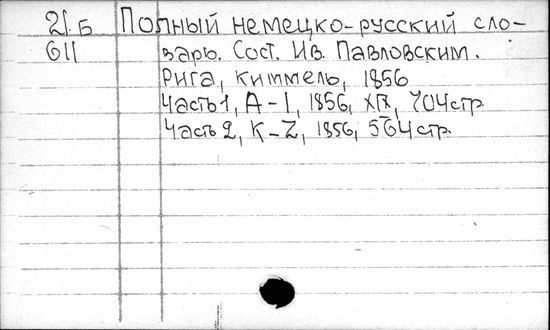 21.Б Полный немецко-русский сло-
611 варь. Сост. Ив. Павловским.
Рига, Киммель, 1856
Часть 1, A-I, 1856, XIX, 704 стр.
Часть 2, K-Z, 1856, 564 стр.